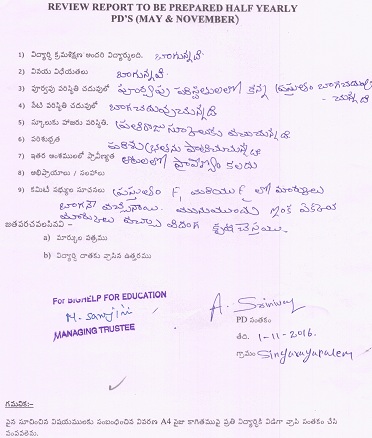 REVIEW REPORT TO BE PREPARED HALF YEARLY
PD'S (MAY & NOVEMBER)
1) విద్యార్థి క్రమశిక్షణ అందరి విద్యార్థులది. బాగున్నది
2) వినయ విధేయతలు బాగున్నవి
3) పూర్వపు పరిస్థితి చదువులో పూర్వపు పరిస్థితులలో కన్న ప్రస్తుతం బాగా చదువు
చున్నది
4) సిటీ పరిస్థితి చదువులో బాగా చదువుచున్నది
5) స్కూలుకు హాజరు పరిస్థితి. ప్రతిరోజు స్కూలుకు వచ్చుచున్నది
6) పరిశుభ్రత పరిశుభ్రతను పాటించుచున్నది
7) ఇతర అంశములలో ప్రావీణ్యత ఆటలలో ప్రావీణ్యం కలదు
8) అభిప్రాయాలు / సలహాలు
9) కమిటీ సభ్యుల సూచనలు ప్రస్తుతం F1 మరియు F లో మార్కులు
బాగానే వచ్చినాయి. మునుముందు ఇంకా
మార్కులు వచ్చు విధంగా కృషి చేయు.
జతపరచవలసినవి -
a) మార్కుల పత్రము
b) విద్యార్థి దాతకు వ్రాసిన ఉత్తరము
For BIGHELP FOR EDUCATION
M. Sarojini
MANAGING TRUSTEE
A. Srinivas
PD సంతకం
తేది. 1-11-2016.
గ్రామం Singarayapalem
గమనిక:-
పైన సూచించిన విషయములకు సంబంధించిన వివరణ A4 సైజు కాగితముపై ప్రతి విద్యార్థికి విడిగా వ్రాసి సంతకం చేసి
పంపవలెను.